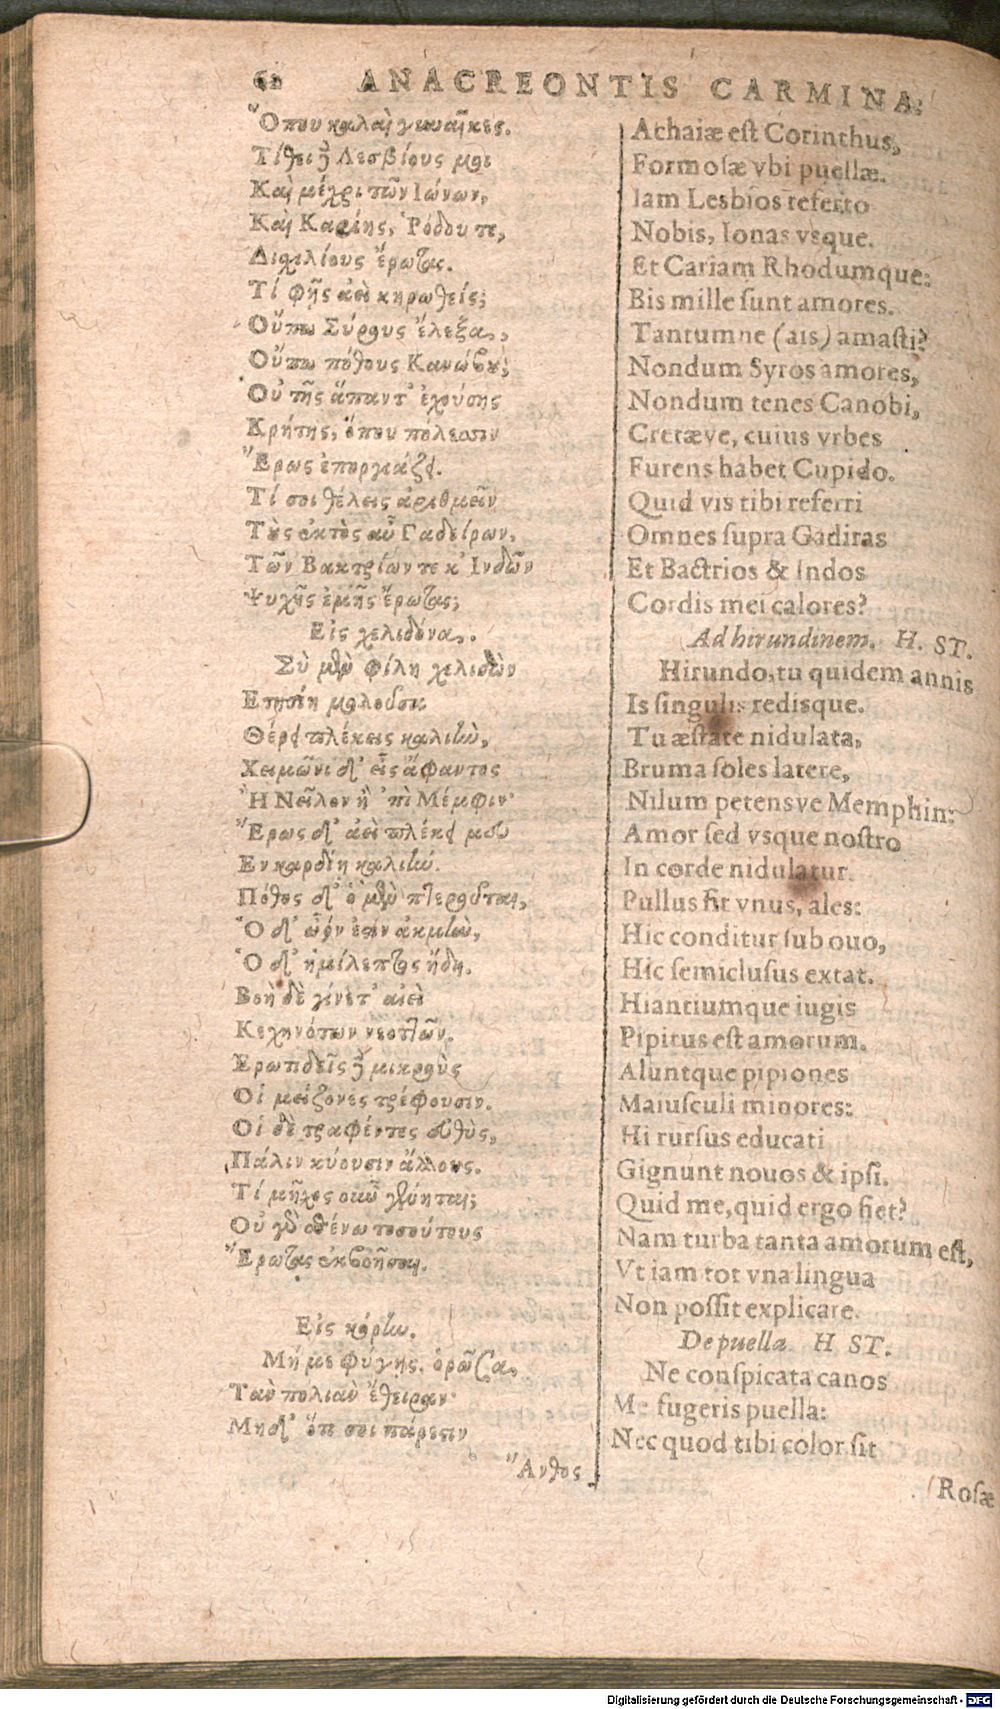 62 ANACREONTIS CARMINA.
Ὅπου καλαὶ γυναῖκες.
Τίθει δὲ Λεσβίους μοι
Καὶ μέχρι τῶν Ἰώνων,
Καὶ Καρίης, Ῥόδου τε,
Δισχιλίους ἔρωτας.
Τί φῂς ἀεὶ κηρωθείς;
Οὔπω Σύρους ἔλεξα,
Οὔπω πόθους Κανώβου;
Οὐ τῆς ἅπαντ' ἐχούσης
Κρήτης, ὅπου πόλεσσιν
Ἔρως ἐποργιάζει.
Τί σοι θέλεις ἀριθμεῖν
Τοὺς ἐκτὸς αὖ Γαδείρων,
Τῶν Βακτρίων τε κ' Ἰνδῶν
Ψυχῆς ἐμῆς ἔρωτας;
Εἰς χελιδόνα.
Σὺ μὲν φίλη χελιδὼν
Ετησίη μολοῦσα
Θέρει πλέκεις καλιὴν,
Χειμῶνι δ' εἶς ἄφαντος
Ἢ Νεῖλον ἢ 'πὶ Μέμφιν·
Ἔρως δ' ἀεὶ πλέκει μου
Εν καρδίῃ καλιήν.
Πόθος δ' ὁ μὲν πτεροῦται,
Ὁ δ' ὠόν ἐστιν ἀκμὴν,
Ὁ δ' ἡμίλεπτος ἤδη.
Βοὴ δὲ γίνετ' αἰεὶ
Κεχηνότων νεοττῶν.
Ἐρωτιδεῖς δὲ μικροὺς
Οἱ μείζονες τρέφουσιν.
Οἱ δὲ τραφέντες εὐθὺς,
Πάλιν κύουσιν ἄλλους.
Τί μῆχος οὖν γένηται;
Οὐ γὰρ σθένω τοσούτους
Ἔρωτας ἐκβοῆσαι.
Εἰς κόρην.
Μή με φύγῃς, ὁρῶσα,
Τὰν πολιὰν ἔθειραν·
Μηδ' ὅτι σοι πάρεστιν
Ἄνθος
Achaiæ est Corinthus,
Formosæ vbi puellæ.
Iam Lesbios referto
Nobis, Ionas vsque.
Et Cariam Rhodumque:
Bis mille sunt amores.
Tantumne (ais) amasti?
Nondum Syros amores,
Nondum tenes Canobi,
Cretæve, cuius vrbes
Furens habet Cupido.
Quid vis tibi referri
Omnes supra Gadiras
Et Bactrios & Indos
Cordis mei calores?
Ad hirundinem. H. ST.
Hirundo, tu quidem annis
Is singulis redisque.
Tu æstate nidulata,
Bruma soles latere,
Nilum petensve Memphin:
Amor sed vsque nostro
In corde nidulatur.
Pullus fit vnus, ales:
Hic conditur sub ouo,
Hic semiclusus extat.
Hiantiumque iugis
Pipitus est amorum.
Aluntque pipiones
Maiusculi minores:
Hi rursus educati
Gignunt nouos & ipsi.
Quid me, quid ergo fiet?
Nam turba tanta amorum est,
Vt iam tot vna lingua
Non possit explicare.
De puella H ST.
Ne conspicata canos
Me fugeris puella:
Nec quod tibi color sit
Rosæ
Digitalisierung gefördert durch die Deutsche Forschungsgemeinschaft - DFG